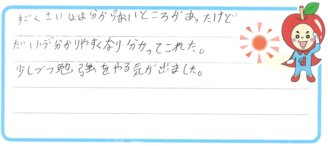 すごくさいしょは分からないところがあったけど
だいぶ分かりやすくなり分かってこれた。
少しづつ勉強をやる気が出ました。